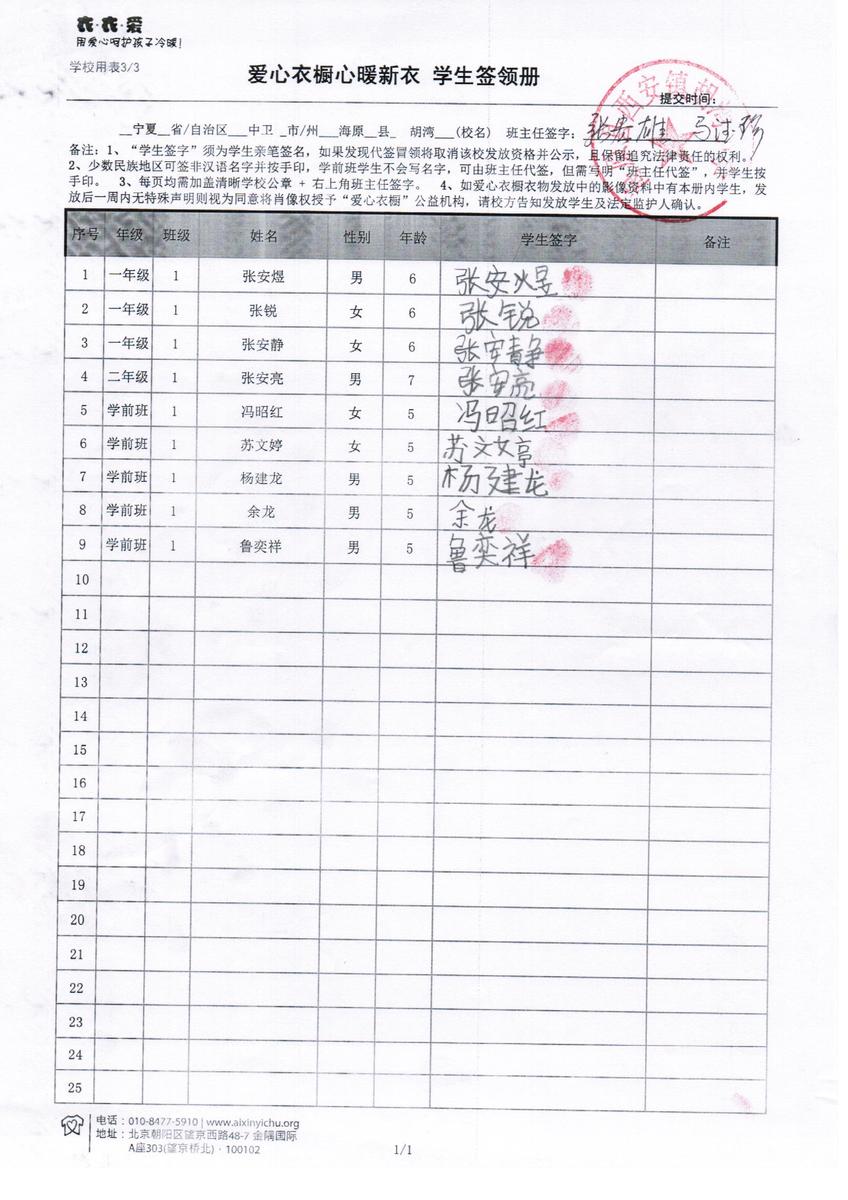 衣·衣·爱
用爱心呵护孩子冷暖!
学校用表3/3
爱心衣橱心暖新衣 学生签领册
提交时间:
西安镇胡
__宁夏__省/自治区___中卫 _市/州___海原__县_ 胡湾___(校名) 班主任签字: 张宏雄 马
备注:1、“学生签字”须为学生亲笔签名,如果发现代签冒领将取消该校发放资格并公示,且保留追究法律责任的权利。
2、少数民族地区可签非汉语名字并按手印,学前班学生不会写名字,可由班主任代签,但需写明“班主任代签”,并学生按
手印。 3、每页均需加盖清晰学校公章 + 右上角班主任签字。 4、如爱心衣橱衣物发放中的影像资料中有本册内学生,发
放后一周内无特殊声明则视为同意将肖像权授予“爱心衣橱”公益机构,请校方告知发放学生及法定监护人确认。
序号 年级 班级 姓名 性别 年龄 学生签字 备注
1 一年级 1 张安煜 男 6 张安煜
2 一年级 1 张锐 女 6 张锐
3 一年级 1 张安静 女 6 张安静
4 二年级 1 张安亮 男 7 张安亮
5 学前班 1 冯昭红 女 5 冯昭红
6 学前班 1 苏文婷 女 5 苏文婷
7 学前班 1 杨建龙 男 5 杨建龙
8 学前班 1 余龙 男 5 余龙
9 学前班 1 鲁奕祥 男 5 鲁奕祥
10
11
12
13
14
15
16
17
18
19
20
21
22
23
24
25
电话:010-8477-5910 | www.aixinyichu.org
地址:北京朝阳区望京西路48-7 金隅国际
A座303(望京桥北)·100102
1/1